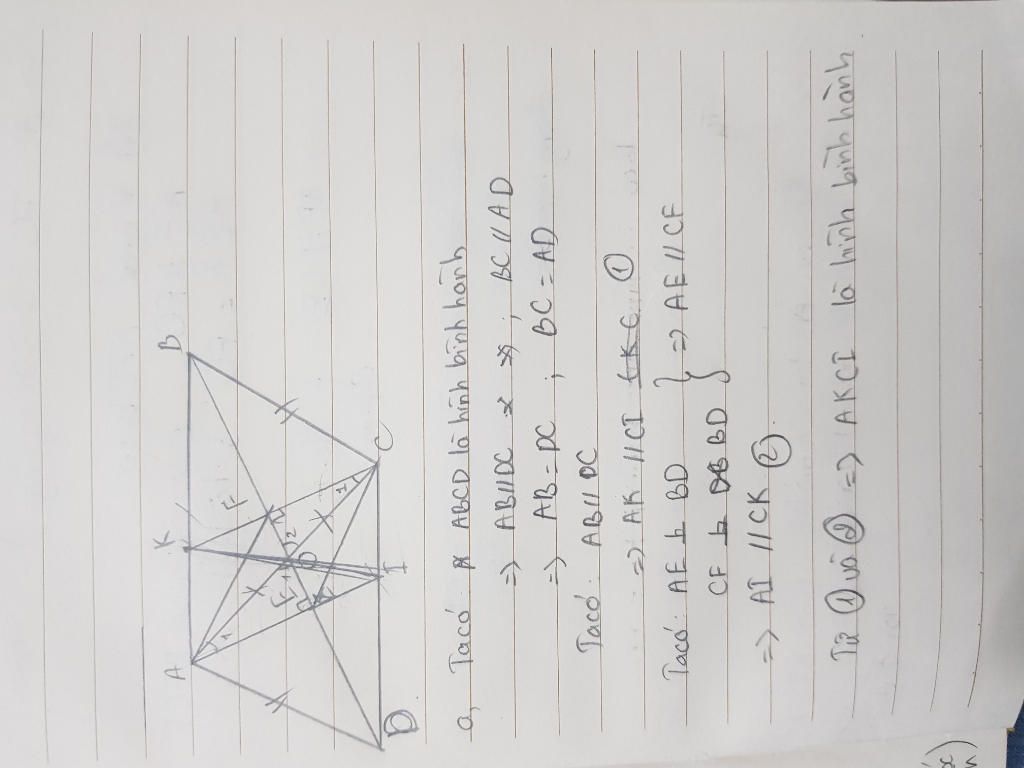 A K B
F
1 2
E 1 O 1
D I C
a, Ta có: ABCD là hình bình hành
=> AB // DC ; BC // AD
=> AB = DC ; BC = AD
Ta có: AB // DC
=> AK // CI ①
Ta có: AE ⊥ BD
CF ⊥ BD } => AE // CF
=> AI // CK ②
Từ ① và ② => AKCI là hình bình hành